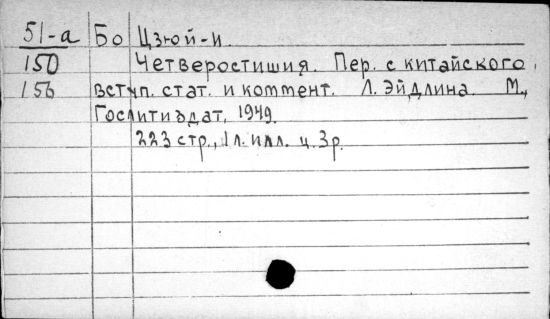 51-а Бо Цзюй-и
150 Четверостишия. Пер. с китайского,
156 вступ. стат. и коммент. Л. Эйдлина. М.,
Гослитиздат, 1949.
223 стр., 1 л. илл. ц. 3 р.